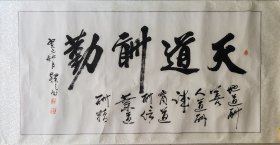 天道酬勤
地道酬
善
人道酬
诚
商道
酬信
業道
酬精